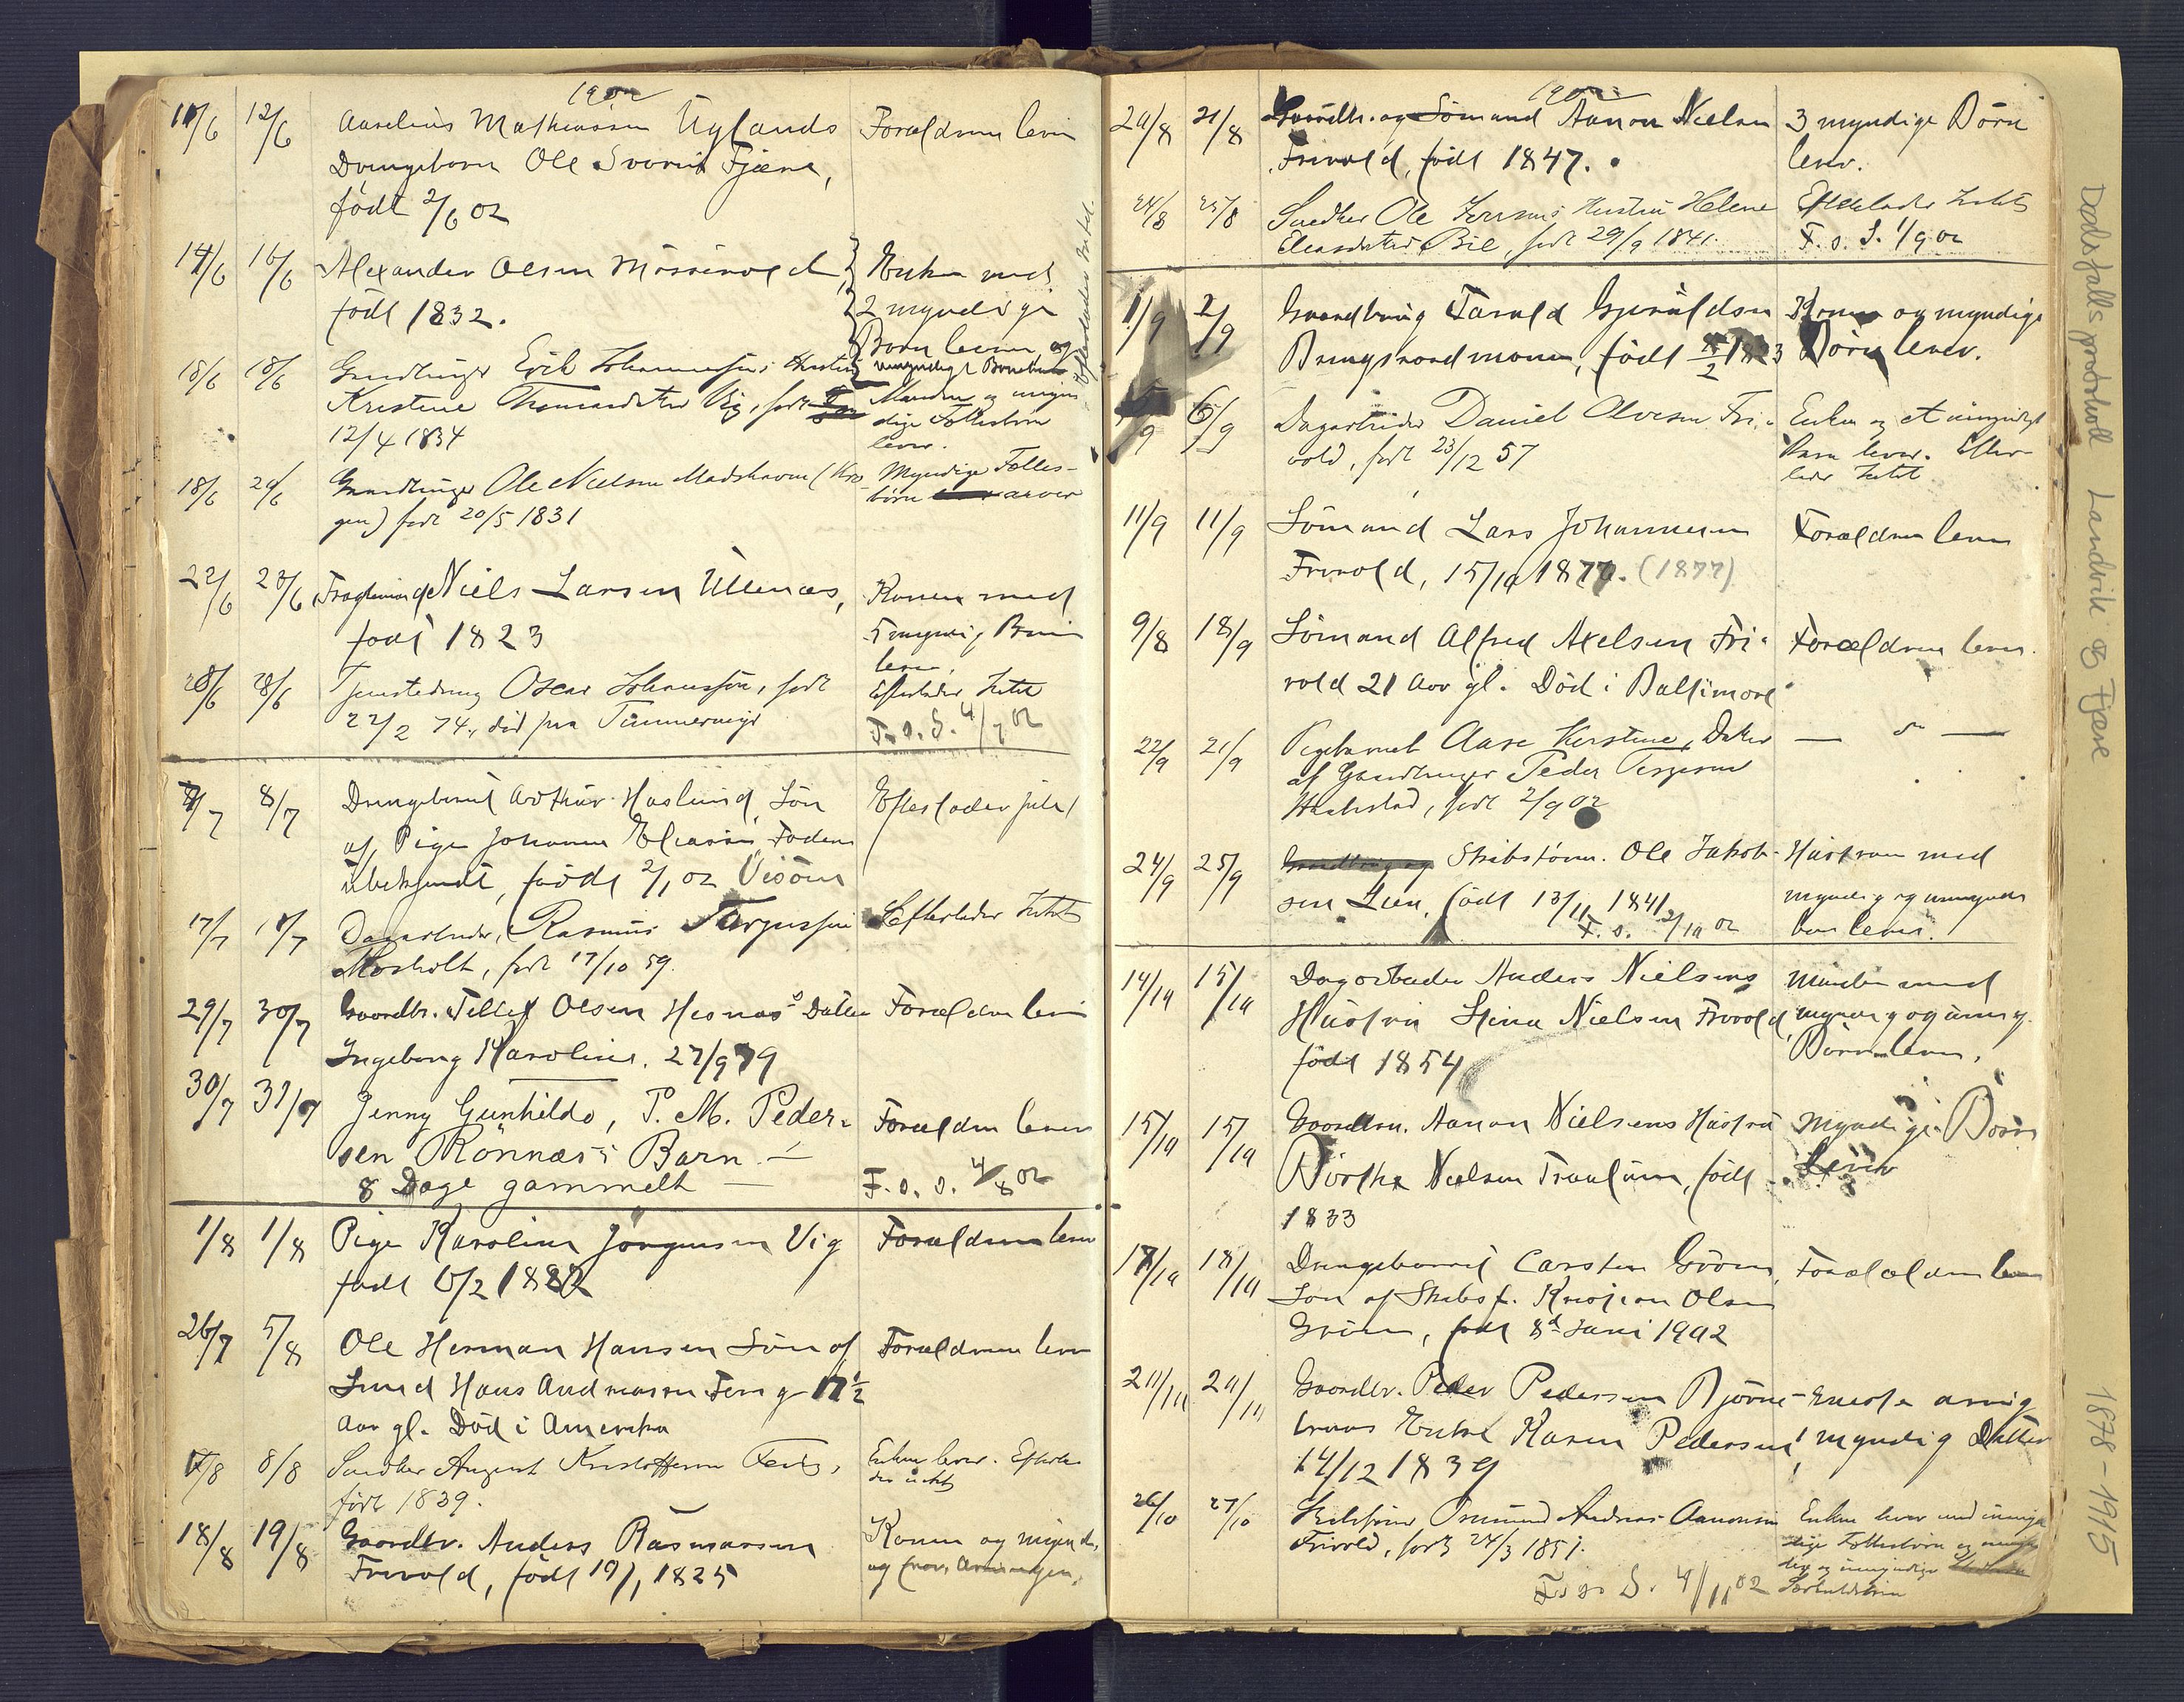 1902
11/6 12/6 Aurelius Mathiassen Uglands Forældrene lever
Drengebarn Ole Fjære,
født 2/6 02
14/6 16/6 Alexander Olsen Enken med
født 1832. 2 myndige
Børn lever og
18/6 18/6 Gaardbruger Erik Johannessens Hustru umyndigt Barnebarn
Kristine Thomasdatter Vig, født Manden og myn
12/4 1834 dige Fællesbørn
lever.
18/6 20/6 Gaardbruger Ole Nielsen Madshaven (Kro Myndige Fælles-
gen) født 20/5 1831 børn arver
Efterlader Intet.
22/6 23/6 Niels Larsen Ullenæs, Konen med
født 1823 5 myndig Børn
lever.
28/6 28/6 Tjenestedreng Oscar Johansen, født Efterlader Intet
22/2 74, død paa Tømmermyr F. o. S. 4/7 02
8/7 Drengebarnet Arthur Haslund, Søn Efterlader Intet
af Pige Johanne Eliassen, Faderen
ubekjendt, født 2/1 02
17/7 18/7 Dagarbeider Rasmus Efterlader Intet
Morholt, født 17/10 59.
29/7 30/7 Gaardbr. Tellef Olsen Hesnæs' Datter Forældrene lever
Ingeborg Karoline, 27/9 79
30/7 31/7 Jenny Gunhilda, P. M. Peder-
sen Rönnæs's Barn — Forældrene lever
8 Dage gammelt — F. o. S. 4/8 02
1/8 1/8 Pige Karoline Jörgensen Vig Forældrene lever
født 6/2 1882
26/7 5/8 Ole Herman Hansen Søn af Forældrene lever
Smed Hans Andreassen 17 1/2
Aar gl. Død i Amerika
8/8 Snedker August Kristoffersen Enken lever. Efterla
født 1839. der intet
18/8 19/8 Gaardbr. Anders Rasmussen Konen og myndig
Frivold, født 19/1 1825 og
1902
20/8 21/8 Gaardbr. og Sømand Aanon Nielsen 3 myndige Børn
Frivold, født 1847. lever.
24/8 25/8 Snedker Ole Hustru Helene Efterlader Intet
Eliasdatter Bie, født 29/9 1841. F. o. S. 1/9 02
1/9 2/9 Gaardbrug Tarald Gjeruldsen Konen og myndige
Bringsværdmoen, født 1823 Børn lever.
5/9 6/9 Dagarbeider Daniel Olvesen Fri- Enken og et umyndigt
vold, født 23/12 57 Barn lever. Efter-
lader Intet
11/9 11/9 Sømand Lars Johannesen Forældrene lever
Frivold, 15/10 1877. (1877)
9/8 18/9 Sømand Alfred Axelsen Fri- Forældrene lever.
vold 21 Aar gl. Død i Baltimore
22/9 21/9 Pigebarnet Aase Kirstine, Datter — " —
af Gaardbruger Peder Terjesen
født 2/9 02
24/9 25/9 Skibsfører. Ole Jakob- Hustruen med
sen Lien, født 13/11 1841. myndig og umyndig
F. o. 2/10 02 barn lever.
14/10 15/10 Dagarbeider Anders Nielsens Manden med
Hustru Stina Nielsen Frivold myndig og umyn.
født 1854 Børn lever.
15/10 15/10 Gaardbr. Aanon Nielsens Hustru Myndige Børn
Dorthe Nielsen født Lever
1833
17/10 18/10 Drengebarnet Carsten Grøm, Forældrene lever
Søn af Skibsf. Kristian Olsen
Grøm, født 8de Juni 1902
20/10 20/10 Gaardbr. Peder Pedersen Bjørne- Eneste arving
braas Enke Karen Pedersen, myndig Datter
14/12 1839
26/10 27/10 Skibsfører Osmund Andreas Aanonsen Enken lever med umyn
Frivold, født 24/3 1851. dige Fællesbørn og myn
dige og umyndige
Særkuldsbørn
F. o. S. 4/11 02
Dødsfallsprotokoll Landvik og Fjære
1878-1915